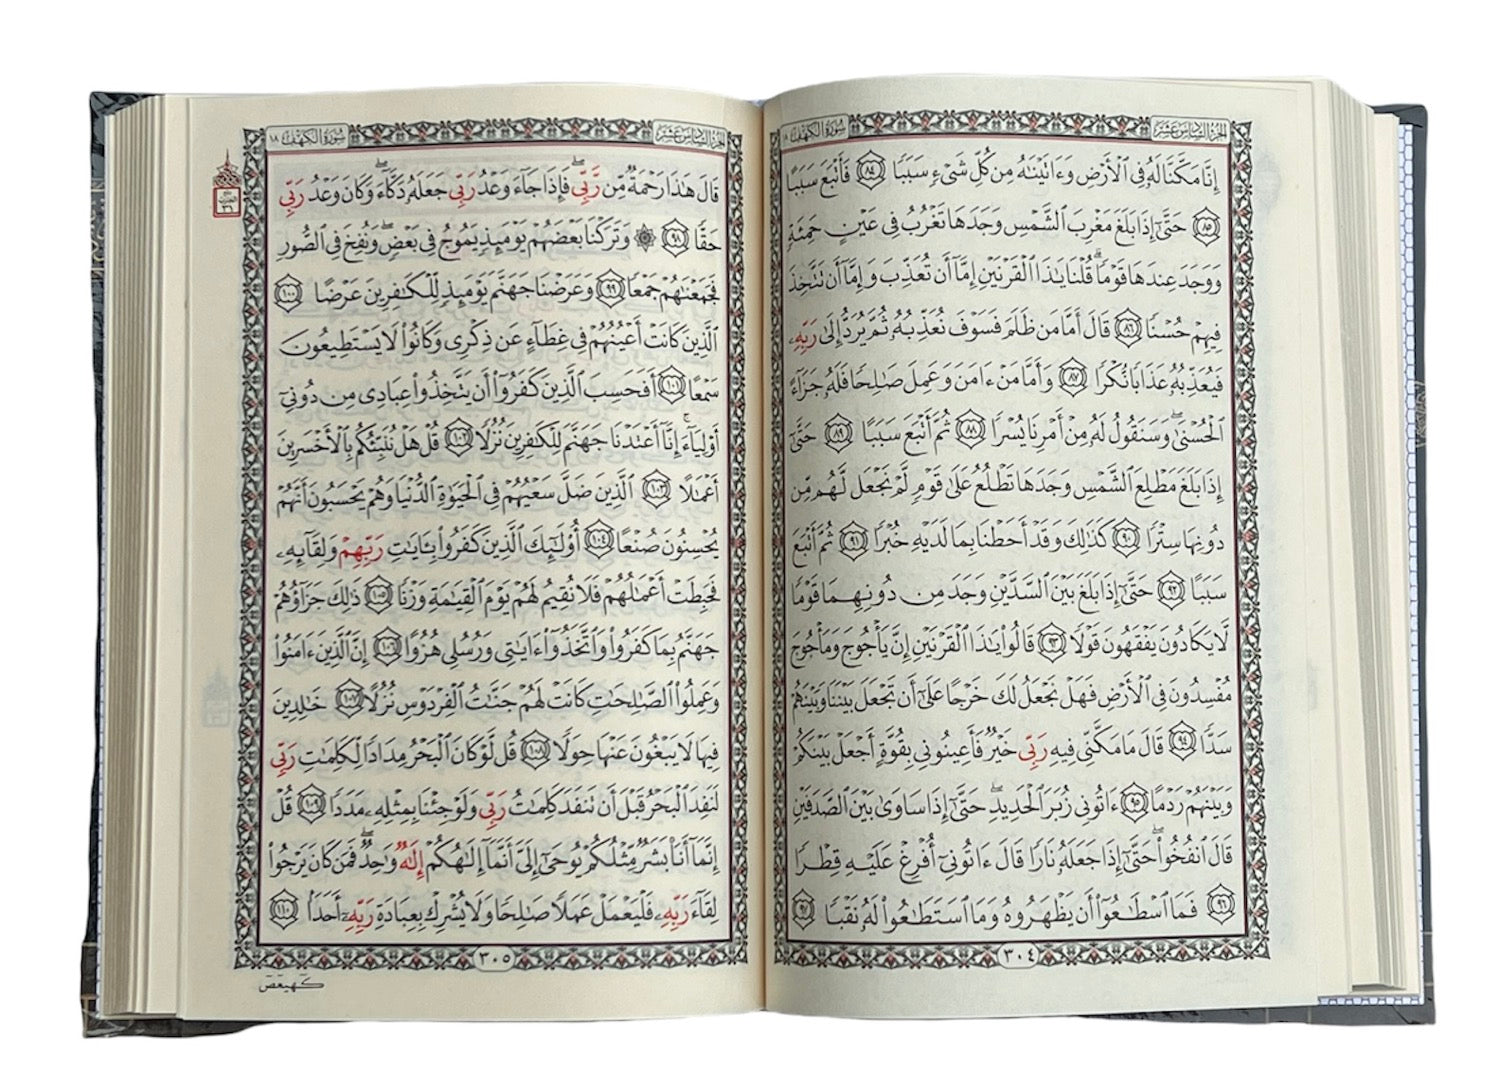 الجزء السادس عشر
سورة الكهف ١٨
إِنَّا مَكَّنَّا لَهُۥ فِى ٱلْأَرْضِ وَءَاتَيْنَٰهُ مِن كُلِّ شَىْءٍ سَبَبًا ٨٤ فَأَتْبَعَ سَبَبًا
٨٥ حَتَّىٰٓ إِذَا بَلَغَ مَغْرِبَ ٱلشَّمْسِ وَجَدَهَا تَغْرُبُ فِى عَيْنٍ حَمِئَةٍ
وَوَجَدَ عِندَهَا قَوْمًا ۗ قُلْنَا يَٰذَا ٱلْقَرْنَيْنِ إِمَّآ أَن تُعَذِّبَ وَإِمَّآ أَن تَتَّخِذَ
فِيهِمْ حُسْنًا ٨٦ قَالَ أَمَّا مَن ظَلَمَ فَسَوْفَ نُعَذِّبُهُۥ ثُمَّ يُرَدُّ إِلَىٰ رَبِّهِۦ
فَيُعَذِّبُهُۥ عَذَابًا نُّكْرًا ٨٧ وَأَمَّا مَنْ ءَامَنَ وَعَمِلَ صَٰلِحًا فَلَهُۥ جَزَآءً
ٱلْحُسْنَىٰ ۖ وَسَنَقُولُ لَهُۥ مِنْ أَمْرِنَا يُسْرًا ٨٨ ثُمَّ أَتْبَعَ سَبَبًا ٨٩ حَتَّىٰٓ
إِذَا بَلَغَ مَطْلِعَ ٱلشَّمْسِ وَجَدَهَا تَطْلُعُ عَلَىٰ قَوْمٍ لَّمْ نَجْعَل لَّهُم مِّن
دُونِهَا سِتْرًا ٩٠ كَذَٰلِكَ وَقَدْ أَحَطْنَا بِمَا لَدَيْهِ خُبْرًا ٩١ ثُمَّ أَتْبَعَ
سَبَبًا ٩٢ حَتَّىٰٓ إِذَا بَلَغَ بَيْنَ ٱلسَّدَّيْنِ وَجَدَ مِن دُونِهِمَا قَوْمًا
لَّا يَكَادُونَ يَفْقَهُونَ قَوْلًا ٩٣ قَالُوا۟ يَٰذَا ٱلْقَرْنَيْنِ إِنَّ يَأْجُوجَ وَمَأْجُوجَ
مُفْسِدُونَ فِى ٱلْأَرْضِ فَهَلْ نَجْعَلُ لَكَ خَرْجًا عَلَىٰٓ أَن تَجْعَلَ بَيْنَنَا وَبَيْنَهُمْ
سَدًّا ٩٤ قَالَ مَا مَكَّنِّى فِيهِ رَبِّى خَيْرٌ فَأَعِينُونِى بِقُوَّةٍ أَجْعَلْ بَيْنَكُمْ
وَبَيْنَهُمْ رَدْمًا ٩٥ ءَاتُونِى زُبَرَ ٱلْحَدِيدِ ۖ حَتَّىٰٓ إِذَا سَاوَىٰ بَيْنَ ٱلصَّدَفَيْنِ
قَالَ ٱنفُخُوا۟ ۖ حَتَّىٰٓ إِذَا جَعَلَهُۥ نَارًا قَالَ ءَاتُونِىٓ أُفْرِغْ عَلَيْهِ قِطْرًا
٩٦ فَمَا ٱسْطَٰعُوٓا۟ أَن يَظْهَرُوهُ وَمَا ٱسْتَطَٰعُوا۟ لَهُۥ نَقْبًا
٣٠٤
الجزء السادس عشر
سورة الكهف ١٨
قَالَ هَٰذَا رَحْمَةٌ مِّن رَّبِّى ۖ فَإِذَا جَآءَ وَعْدُ رَبِّى جَعَلَهُۥ دَكَّآءَ ۖ وَكَانَ وَعْدُ رَبِّى
حَقًّا ٩٨ ۞ وَتَرَكْنَا بَعْضَهُمْ يَوْمَئِذٍ يَمُوجُ فِى بَعْضٍ ۖ وَنُفِخَ فِى ٱلصُّورِ
فَجَمَعْنَٰهُمْ جَمْعًا ٩٩ وَعَرَضْنَا جَهَنَّمَ يَوْمَئِذٍ لِّلْكَٰفِرِينَ عَرْضًا ١٠٠
ٱلَّذِينَ كَانَتْ أَعْيُنُهُمْ فِى غِطَآءٍ عَن ذِكْرِى وَكَانُوا۟ لَا يَسْتَطِيعُونَ
سَمْعًا ١٠١ أَفَحَسِبَ ٱلَّذِينَ كَفَرُوٓا۟ أَن يَتَّخِذُوا۟ عِبَادِى مِن دُونِىٓ
أَوْلِيَآءَ ۚ إِنَّآ أَعْتَدْنَا جَهَنَّمَ لِلْكَٰفِرِينَ نُزُلًا ١٠٢ قُلْ هَلْ نُنَبِّئُكُم بِٱلْأَخْسَرِينَ
أَعْمَٰلًا ١٠٣ ٱلَّذِينَ ضَلَّ سَعْيُهُمْ فِى ٱلْحَيَوٰةِ ٱلدُّنْيَا وَهُمْ يَحْسَبُونَ أَنَّهُمْ
يُحْسِنُونَ صُنْعًا ١٠٤ أُو۟لَٰٓئِكَ ٱلَّذِينَ كَفَرُوا۟ بِـَٔايَٰتِ رَبِّهِمْ وَلِقَآئِهِۦ
فَحَبِطَتْ أَعْمَٰلُهُمْ فَلَا نُقِيمُ لَهُمْ يَوْمَ ٱلْقِيَٰمَةِ وَزْنًا ١٠٥ ذَٰلِكَ جَزَآؤُهُمْ
جَهَنَّمُ بِمَا كَفَرُوا۟ وَٱتَّخَذُوٓا۟ ءَايَٰتِى وَرُسُلِى هُزُوًا ١٠٦ إِنَّ ٱلَّذِينَ ءَامَنُوا۟
وَعَمِلُوا۟ ٱلصَّٰلِحَٰتِ كَانَتْ لَهُمْ جَنَّٰتُ ٱلْفِرْدَوْسِ نُزُلًا ١٠٧ خَٰلِدِينَ
فِيهَا لَا يَبْغُونَ عَنْهَا حِوَلًا ١٠٨ قُل لَّوْ كَانَ ٱلْبَحْرُ مِدَادًا لِّكَلِمَٰتِ رَبِّى
لَنَفِدَ ٱلْبَحْرُ قَبْلَ أَن تَنفَدَ كَلِمَٰتُ رَبِّى وَلَوْ جِئْنَا بِمِثْلِهِۦ مَدَدًا ١٠٩ قُلْ
إِنَّمَآ أَنَا۠ بَشَرٌ مِّثْلُكُمْ يُوحَىٰٓ إِلَىَّ أَنَّمَآ إِلَٰهُكُمْ إِلَٰهٌ وَٰحِدٌ ۖ فَمَن كَانَ يَرْجُوا۟
لِقَآءَ رَبِّهِۦ فَلْيَعْمَلْ عَمَلًا صَٰلِحًا وَلَا يُشْرِكْ بِعِبَادَةِ رَبِّهِۦٓ أَحَدًۢا ١١٠
٣٠٥
كهيعص